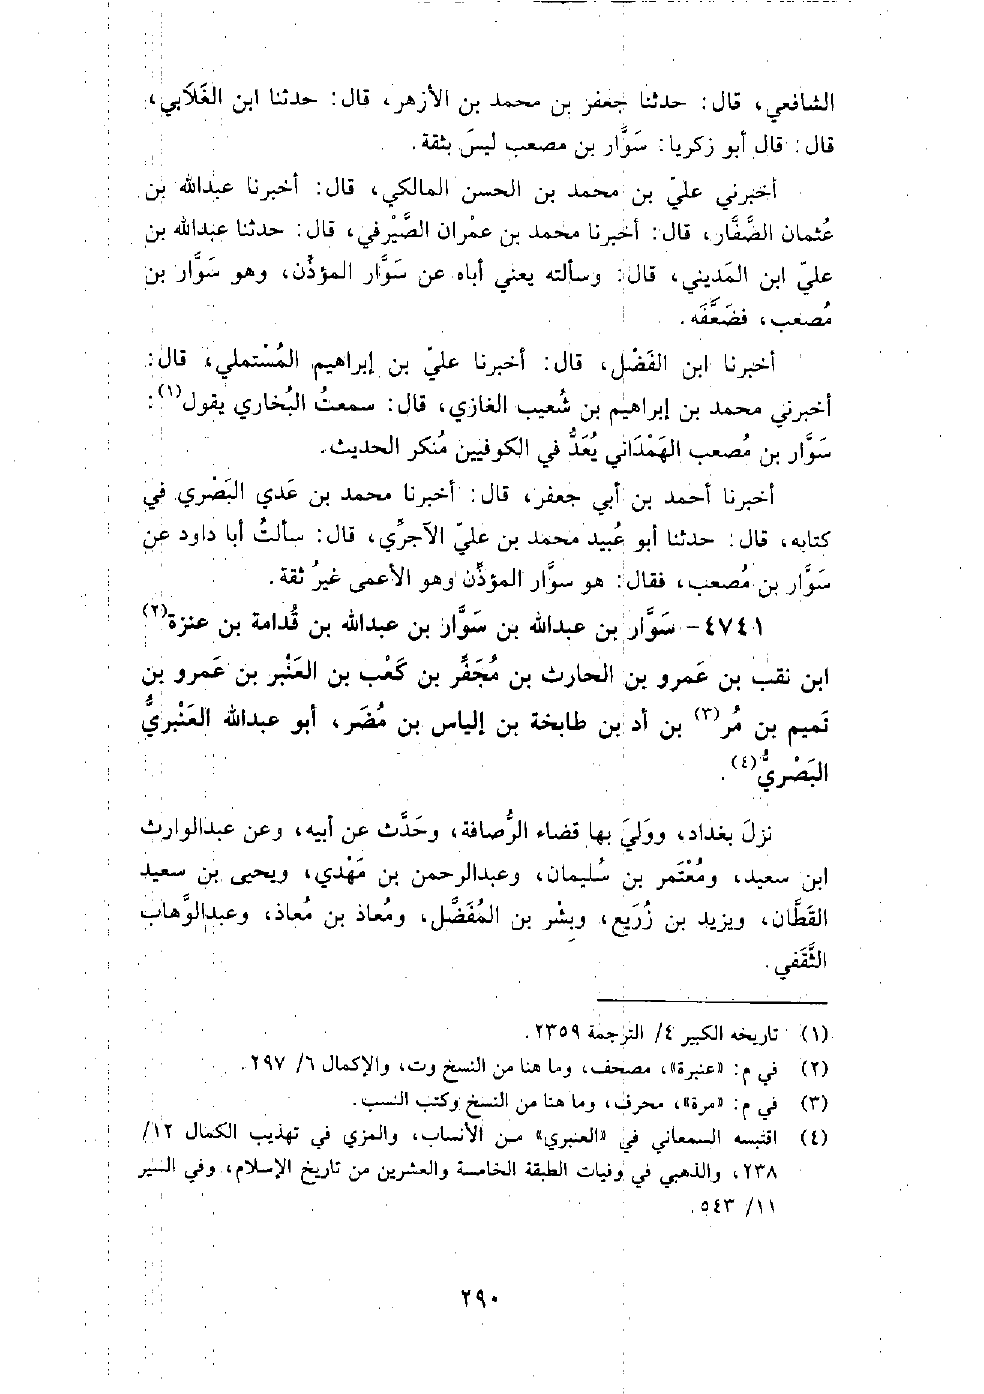 الشافعي، قال: حدثنا جعفر بن محمد بن الأزهر، قال: حدثنا ابن الغَلاَبي،
قال: قال أبو زكريا: سَوَّار بن مصعب ليسَ بثقة.
أخبرني عليّ بن محمد بن الحسن المالكي، قال: أخبرنا عبدالله بن
عُثمان الصَّفَّار، قال: أخبرنا محمد بن عمْران الصَّيْرفي، قال: حدثنا عبدالله بن
عليّ ابن المَديني، قال: وسألته يعني أباه عن سَوَّار المؤذِّن، وهو سَوَّار بن
مُصعب، فضَعَّفَه.
أخبرنا ابن الفَضْل، قال: أخبرنا عليّ بن إبراهيم المُسْتملي، قال:
أخبرني محمد بن إبراهيم بن شُعيب الغازي، قال: سمعتُ البُخاري يقول(١):
سَوَّار بن مُصعب الهَمْدَاني يُعَدُّ في الكوفيين مُنكر الحديث.
أخبرنا أحمد بن أبي جعفر، قال: أخبرنا محمد بن عَدي البَصْري في
كتابه، قال: حدثنا أبو عُبيد محمد بن عليّ الآجرِّي، قال: سألتُ أبا داود عن
سَوَّار بن مُصعب، فقال: هو سوَّار المؤذِّن وهو الأعمى غيرُ ثقة.
٤٧٤١- سَوَّار بن عبدالله بن سَوَّار بن عبدالله بن قُدامة بن عنزة(٢)
ابن نقب بن عَمرو بن الحارث بن مُجَفِّر بن كَعْب بن العَنْبر بن عَمرو بن
تَميم بن مُر(٣) بن أد بن طابخة بن إلياس بن مُضَر، أبو عبدالله العَنْبريُّ
البَصْريُّ(٤).
نزلَ بغداد، ووَليَ بها قضاء الرُّصافة، وحَدَّث عن أبيه، وعن عبدالوارث
ابن سعيد، ومُعْتَمر بن سُليمان، وعبدالرحمن بن مَهْدي، ويحيى بن سعيد
القَطَّان، ويزيد بن زُرَيع، وبشْر بن المُفَضَّل، ومُعاذ بن مُعاذ، وعبدالوَّهاب
الثَّقَفي.
(١) تاريخه الكبير ٤/ الترجمة ٢٣٥٩.
(٢) في م: «عنبرة»، مصحف، وما هنا من النسخ وت، والإكمال ٦/ ٢٩٧.
(٣) في م: «مرة»، محرف، وما هنا من النسخ وكتب النسب.
(٤) اقتبسه السمعاني في «العنبري» من الأنساب، والمزي في تهذيب الكمال ١٢/
٢٣٨، والذهبي في وفيات الطبقة الخامسة والعشرين من تاريخ الإسلام، وفي السير
١١/ ٥٤٣.
٢٩٠